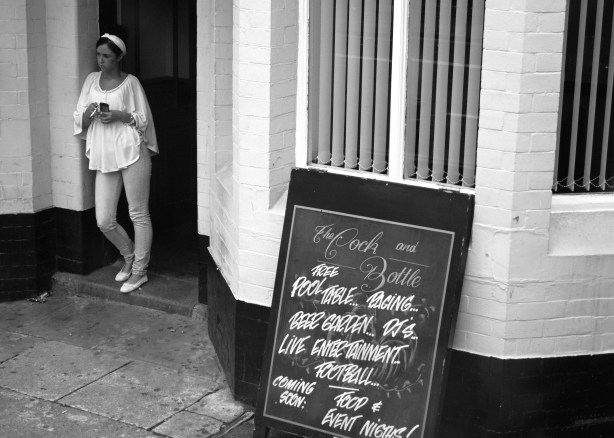 The Cock and
Bottle
FREE
POOL TABLE... RACING...
BEER GARDEN... DJ'S..
LIVE ENTERTAINMENT..
FOOTBALL...
COMING
SOON:
FOOD &
EVENT NIGTHS!